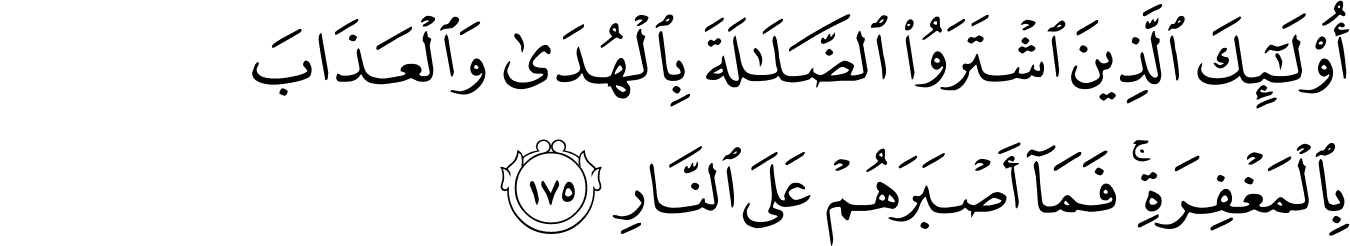 أُو۟لَـٰٓئِكَ ٱلَّذِينَ ٱشْتَرَوُا۟ ٱلضَّلَـٰلَةَ بِٱلْهُدَىٰ وَٱلْعَذَابَ
بِٱلْمَغْفِرَةِ ۚ فَمَآ أَصْبَرَهُمْ عَلَى ٱلنَّارِ ١٧٥